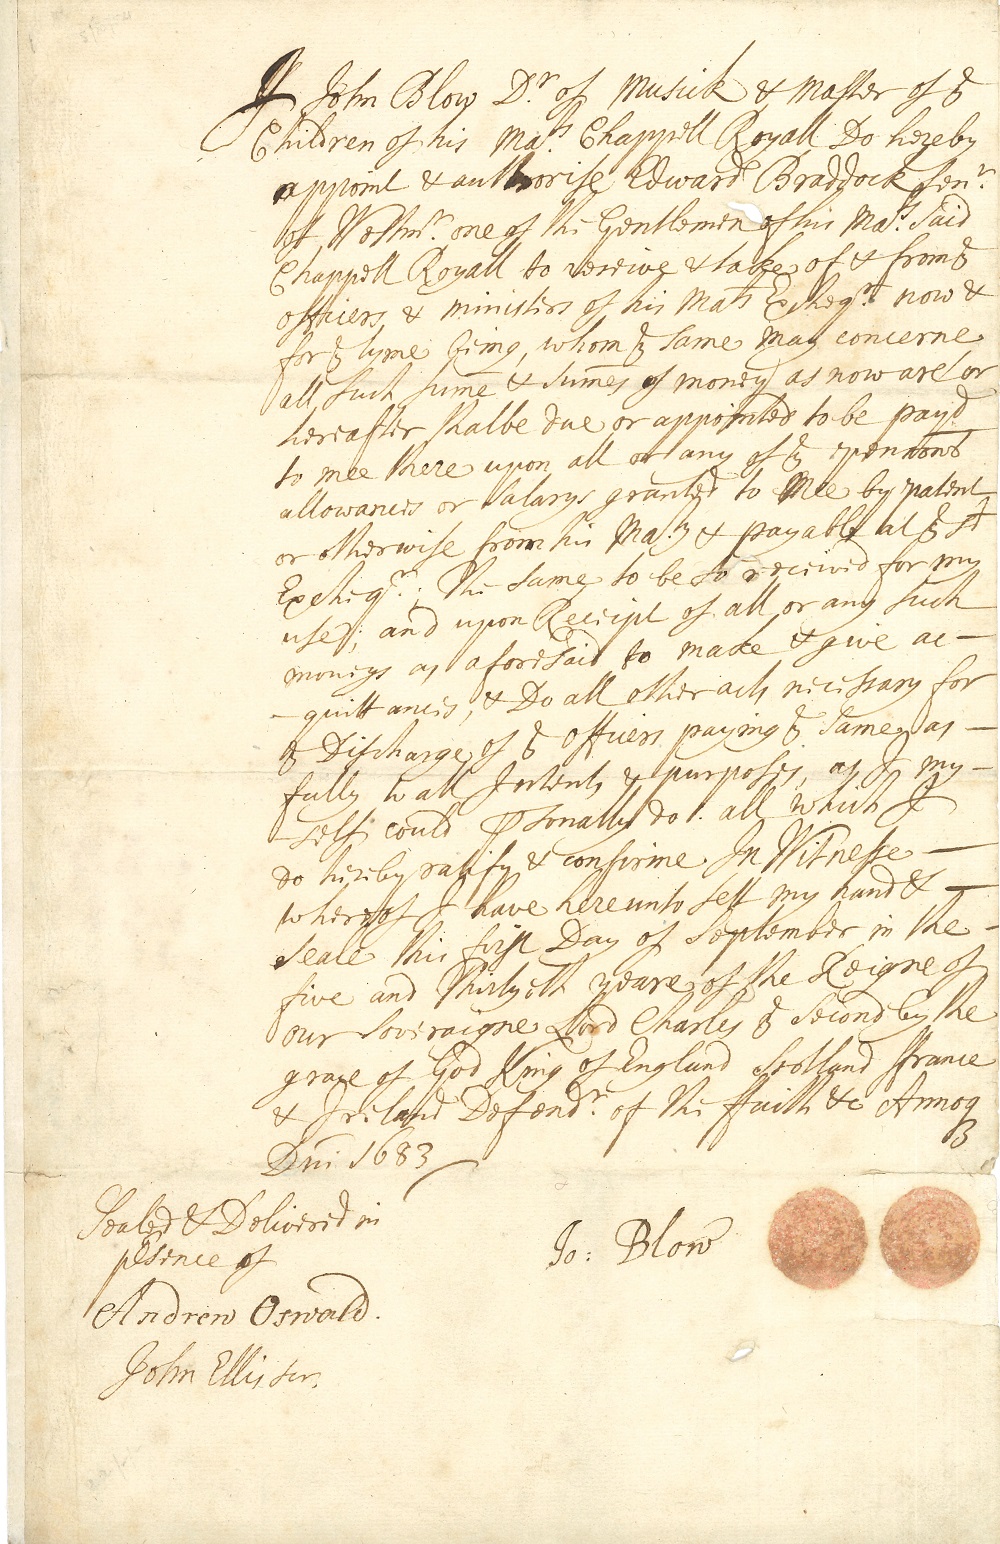 I John Blow Dr. of Musick & Master of ye
Children of his Mats. Chappell Royall Do hereby
appoint & authorise Edward Braddock senr.
of Westmr. one of the Gentlemen of his Mats. said
Chappell Royall to receive & take of & from ye
officers & ministers of his Mats Excheqr. now &
for ye tyme being, whom ye same may concerne
all such sume & sumes of money as now are or
hereafter shalbe due or appointed to be payd
to mee there upon all or any of ye
allowances or salarys granted to Mee by patent
or otherwise from his Maty & payable at ye sd
Excheqr.; The same to be so received for my
use; and upon Receipt of all or any such
moneys as aforesaid to make & give ac—
—quittances, & Do all other acts necessary for
ye Discharge of ye officers paying ye same, as —
fully to all Intents & purposes, as I my—
—self could psonally do. all which I
do hereby ratify & confirme In Witnesse —
whereof I have hereunto sett my hand & —
seale this first Day of September in the —
five and thirtyeth yeare of the Reigne of
our soveraigne Lord Charles ye second by the
grace of God King of England Scotland ffrance
& Ireland Defendr. of the ffaith &c Annoq
Dni 1683
Sealed & Delivered in
psence of
Jo: Blow
Andrew Oswald.
John Ellis ser.